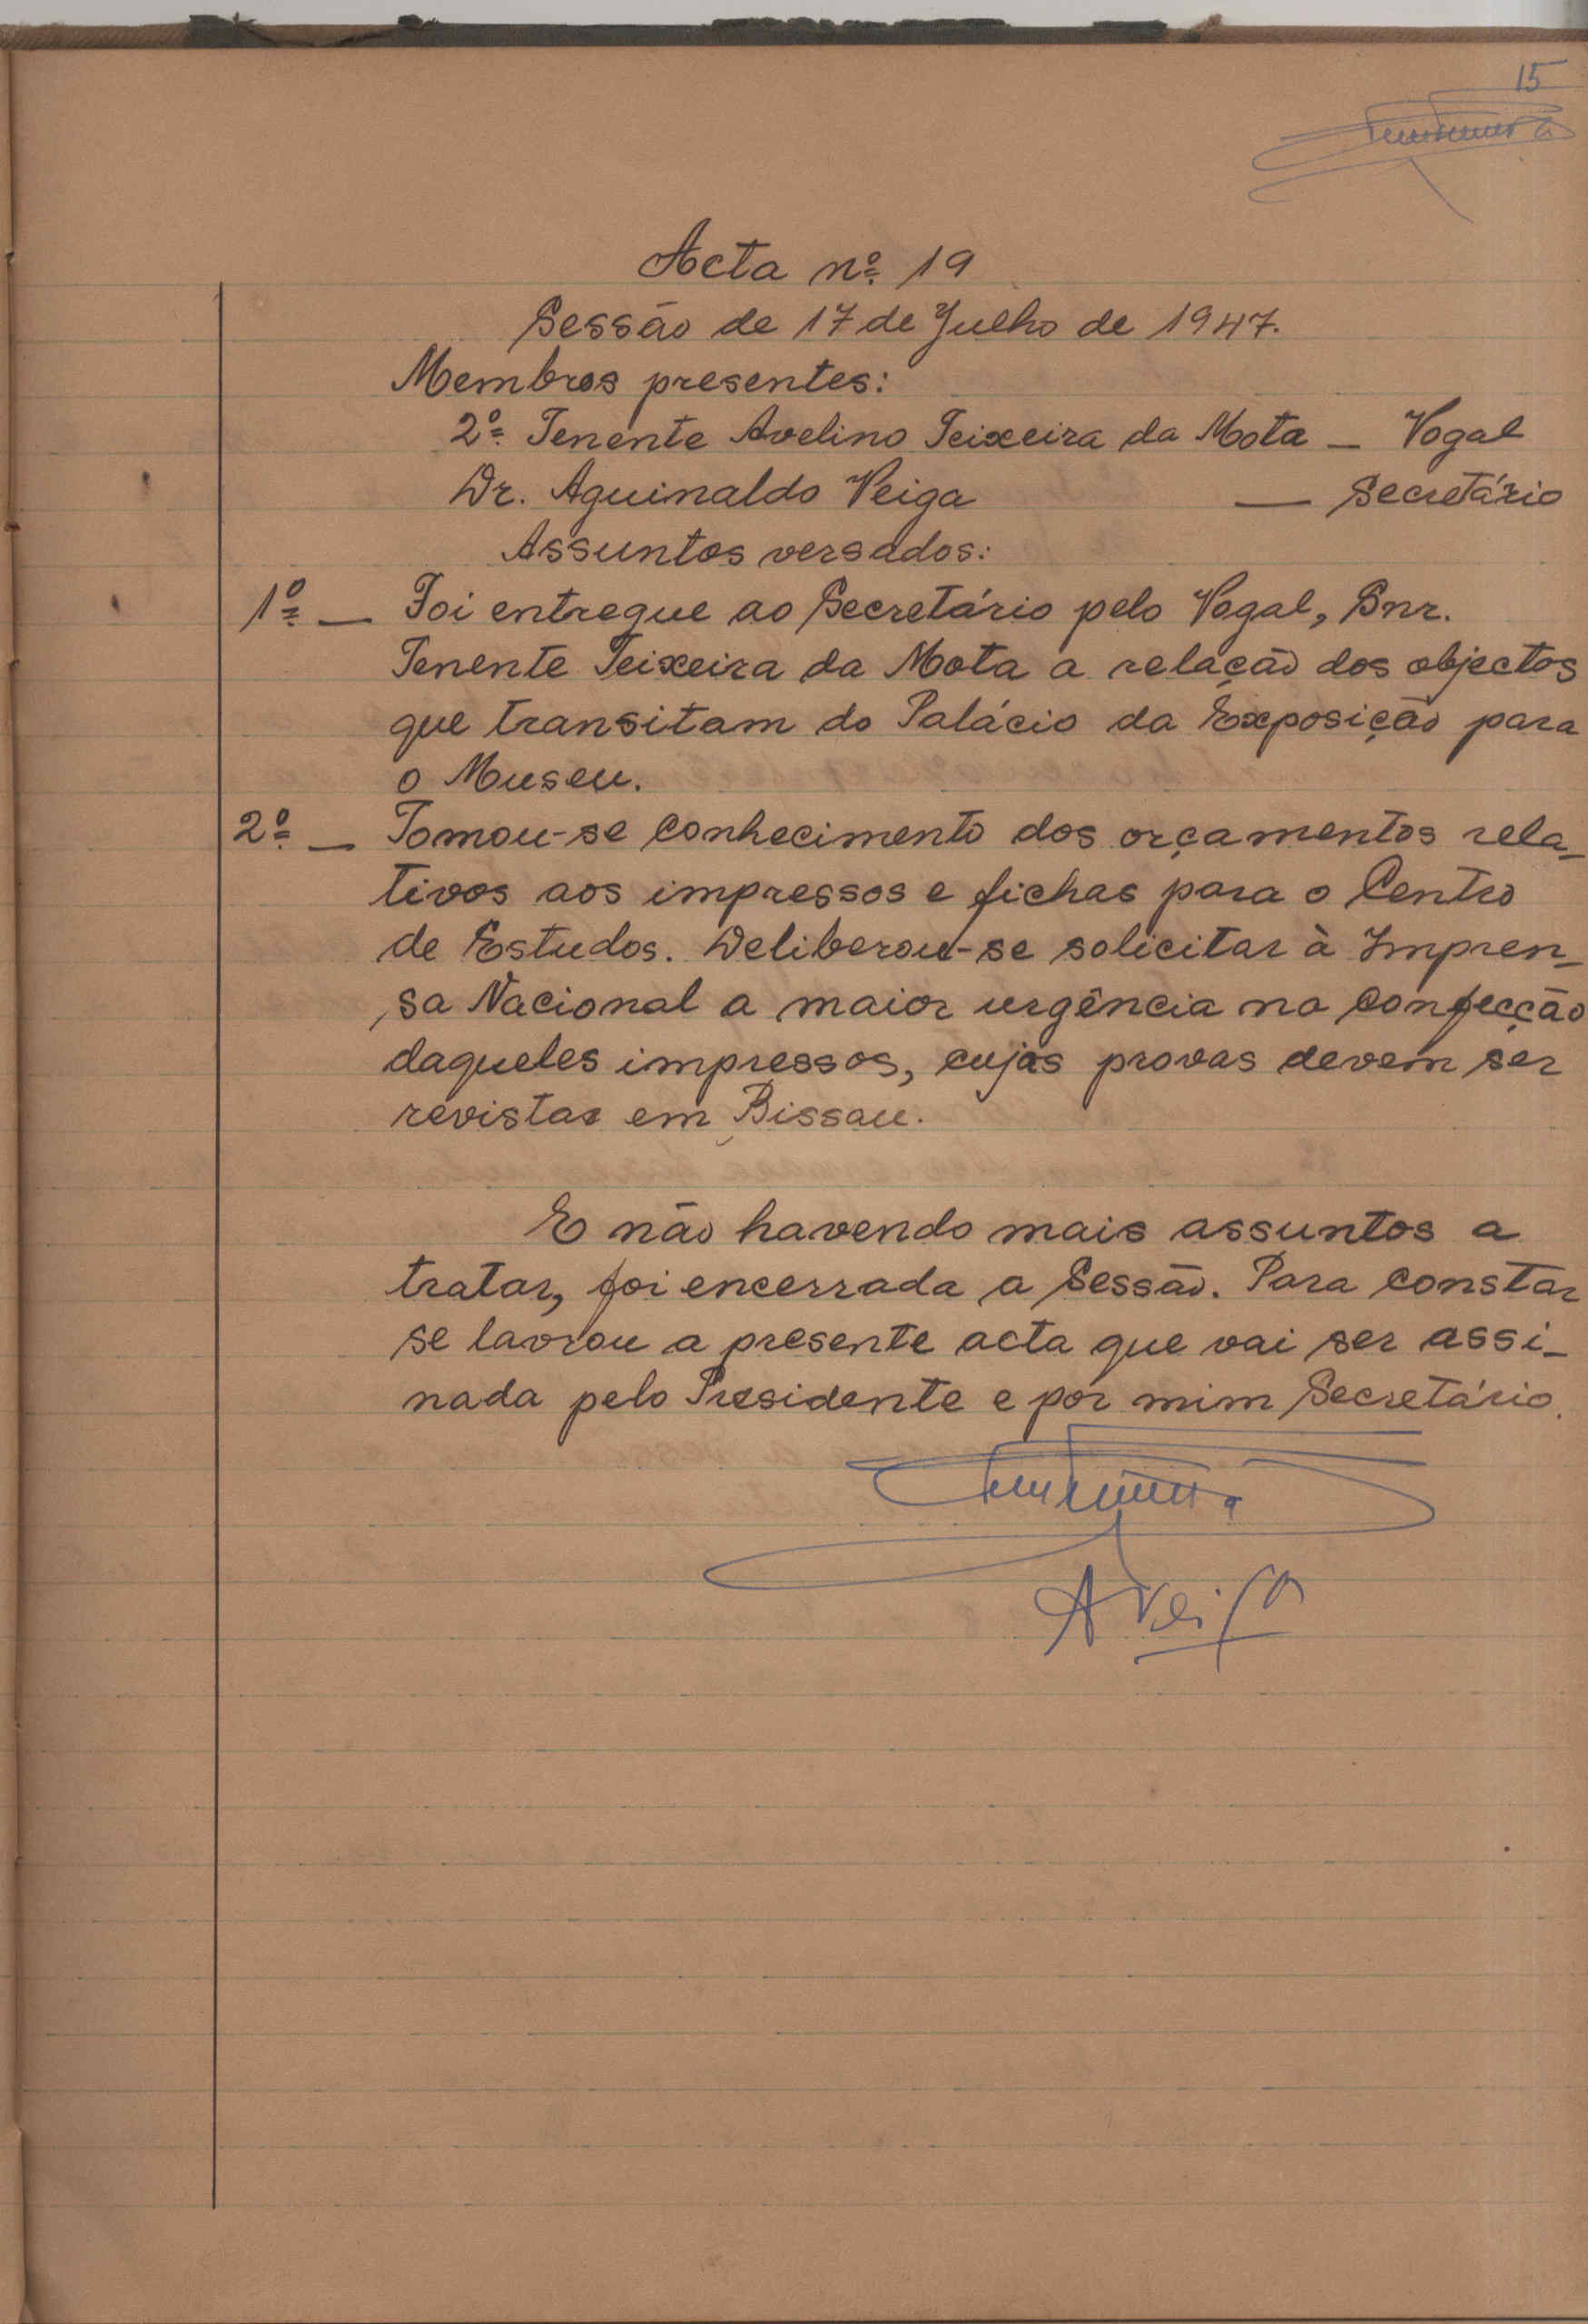 15
Acta nº 19
Sessão de 17 de Julho de 1947.
Membros presentes:
2º Tenente Avelino Teixeira da Mota — Vogal
Dr. Aguinaldo Veiga — Secretário
Assuntos versados:
1º — Foi entregue ao Secretário pelo Vogal, Snr.
Tenente Teixeira da Mota a relação dos objectos
que transitam do Palácio da Exposição para
o Museu.
2º — Tomou-se conhecimento dos orçamentos rela-
tivos aos impressos e fichas para o Centro
de Estudos. Deliberou-se solicitar à Impren-
sa Nacional a maior urgência na confecção
daqueles impressos, cujas provas devem ser
revistas em Bissau.
E não havendo mais assuntos a
tratar, foi encerrada a Sessão. Para constar
se lavrou a presente acta que vai ser assi-
nada pelo Presidente e por mim Secretário.
AVeiga